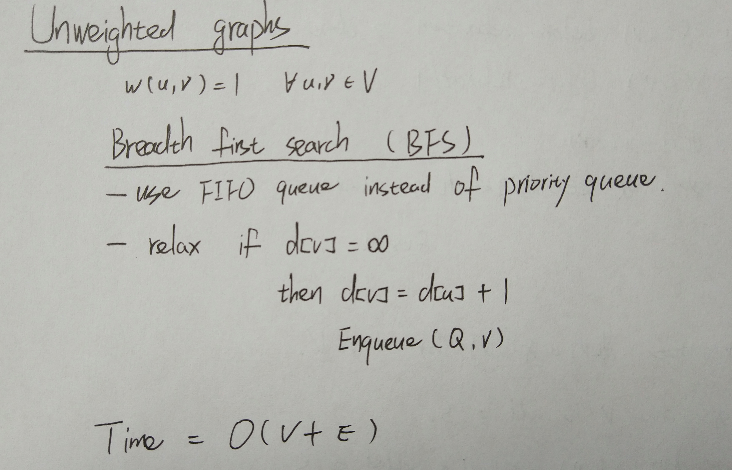 Unweighted graphs
w(u,v)=1 ∀u,v ∈ V
Breadth first search (BFS)
– use FIFO queue instead of priority queue.
– relax if d[v] = ∞
then d[v] = d[u] + 1
Enqueue (Q,v)
Time = O(V+E)